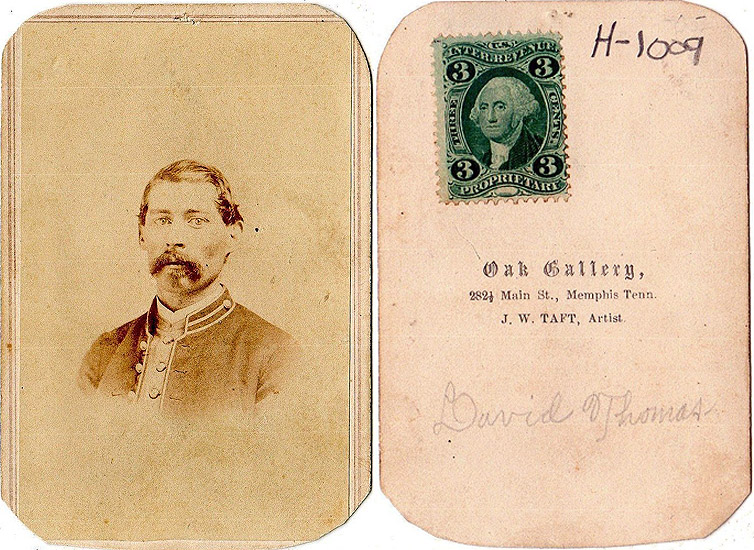 H-1009
U.S.
INTER. REVENUE
3 3
THREE CENTS
3 3
PROPRIETARY
Oak Gallery,
282½ Main St., Memphis Tenn.
J. W. TAFT, Artist.
David Thomas